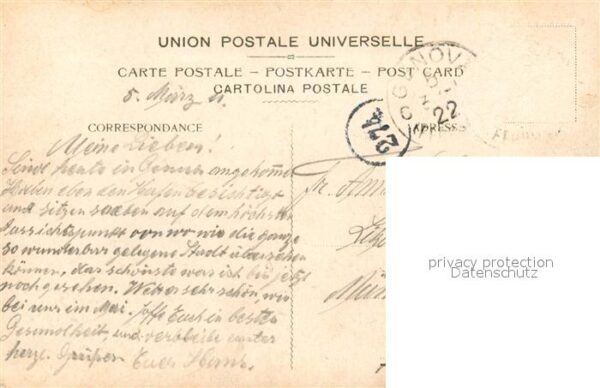 UNION POSTALE UNIVERSELLE
CARTE POSTALE – POSTKARTE – POST CARD
CARTOLINA POSTALE
5. März
GENOVA
22
274
CORRESPONDANCE
ADRESSE
Meine Lieben!
Sind heute in Genua angekommen
Haben eben den Hafen besichtigt
und sitzen soeben auf dem höchsten
Aussichtspunkt von wo wir die ganze
so wunderbar gelegene Stadt übersehen
können, das schönste was ich bis jetzt
noch gesehen. Wetter sehr schön, wie
bei uns im Mai. Hoffe Euch in bester
Gesundheit, und verbleibe unter
herzl. Grüßen Euer Hans.
Fr.
privacy protection
Datenschutz